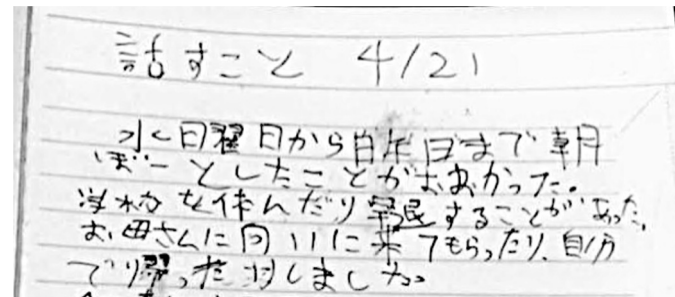 話すこと 4/21
水曜日から自在日まで朝
ぼーとしたことがおおかった。
学校を休んだり早退することがあった。
お母さんに向いに来てもらったり、自分
で帰ったりしました